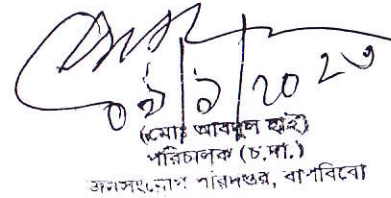 ০১/১/২০২৩
(মোঃ আবদুল হাই)
পরিচালক (চ.দা.)
জনসংযোগ পরিদপ্তর, বাপবিবো